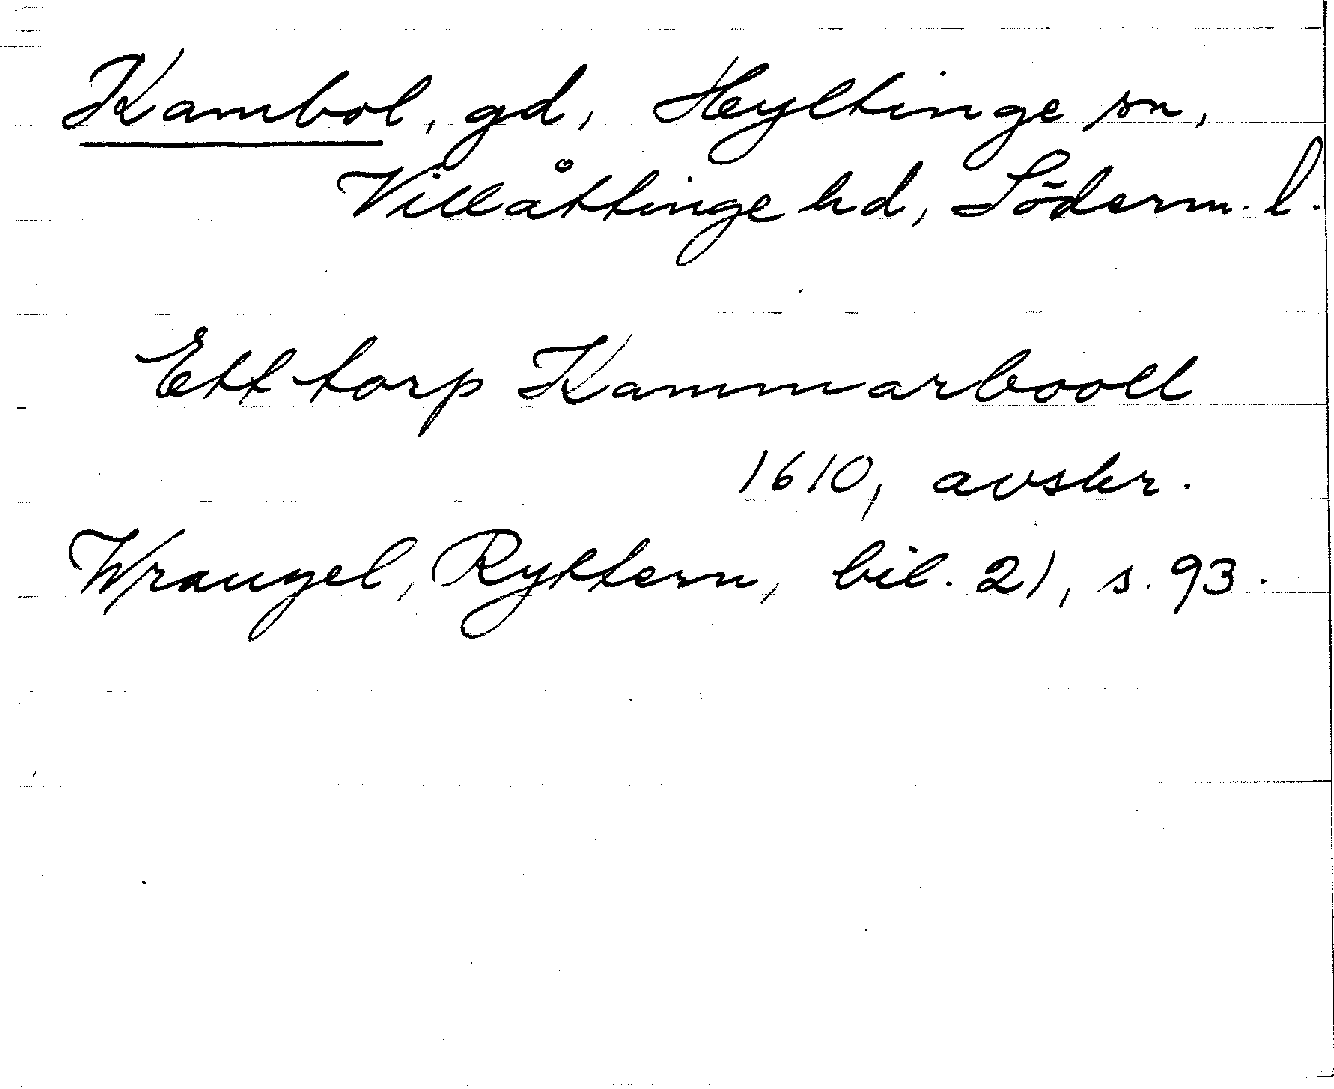 Kambol, gd, Hyltinge sn,
Villåttinge hd, Söderm. l.
Ett torp Kammarbooll
1610, avskr.
Wrangel, Ryttern, bil. 21, s. 93.